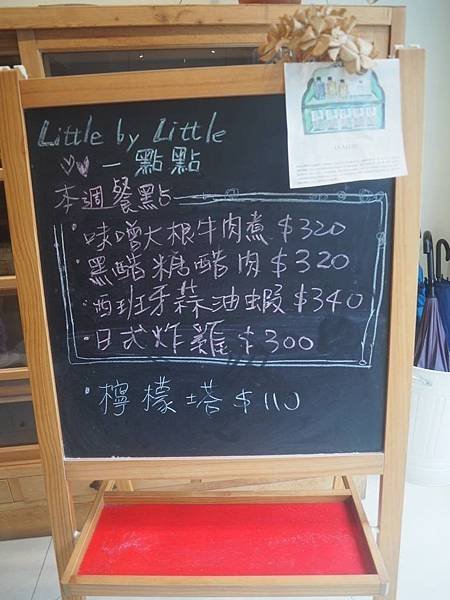 Little by Little
一點點
本週餐點
·味噌大根牛肉煮 $320
·黑醋糖醋肉 $320
·西班牙蒜油蝦 $340
·日式炸雞 $300
·檸檬塔 $110